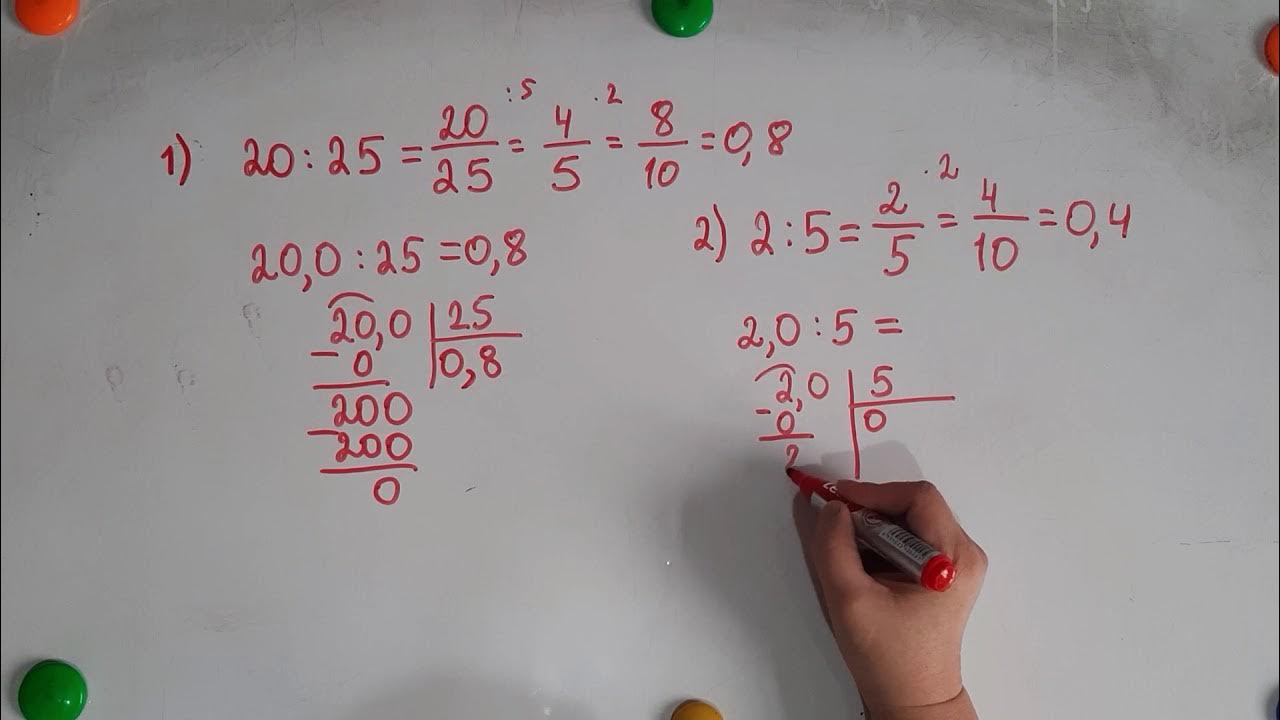 1) 20 : 25 = 20/25 :5 = 4/5 .2 = 8/10 = 0,8
20,0 : 25 = 0,8
20,0 | 25
- 0 | 0,8
200
- 200
0
2) 2 : 5 = 2/5 .2 = 4/10 = 0,4
2,0 : 5 =
2,0 | 5
- 0 | 0
2